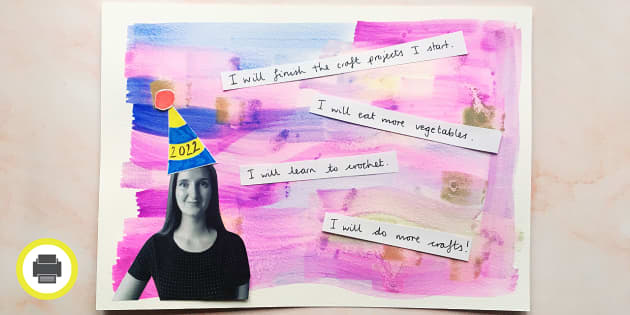 I will finish the craft projects I start.
I will eat more vegetables.
2022
I will learn to crochet.
I will do more crafts!